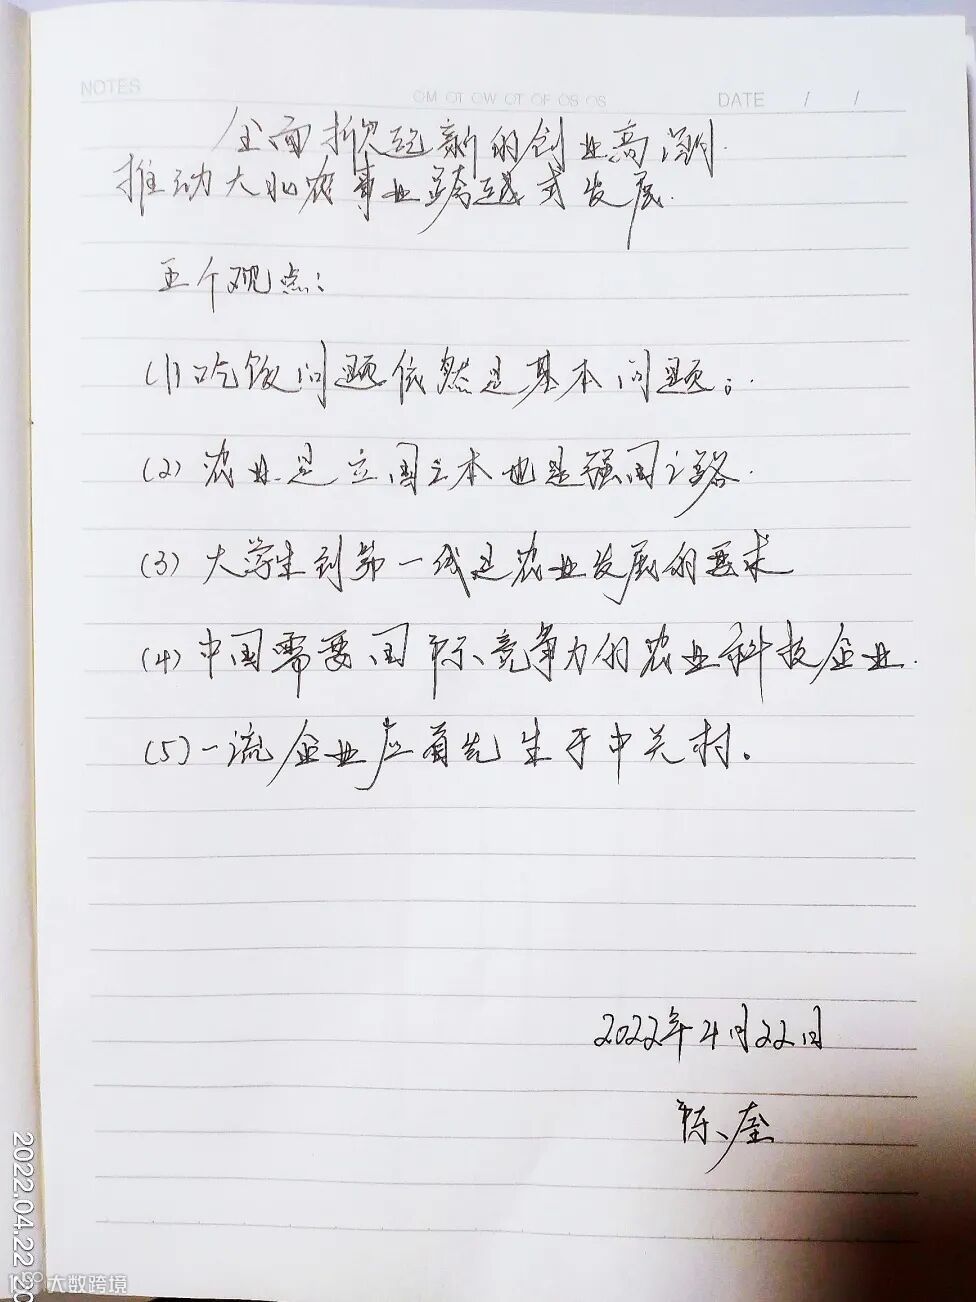 NOTES
DATE / /
全面掀起新的创业高潮.
推动大北农事业跨越式发展.
五个观点:
(1)吃饭问题依然是基本问题;
(2)农业是立国之本也是强国之路.
(3)大学生到第一线是农业发展的要求
(4)中国需要国际竞争力的农业科技企业.
(5)一流企业应首先生于中关村。
2022年4月22日
陈
2022.04.22 20
大数跨境